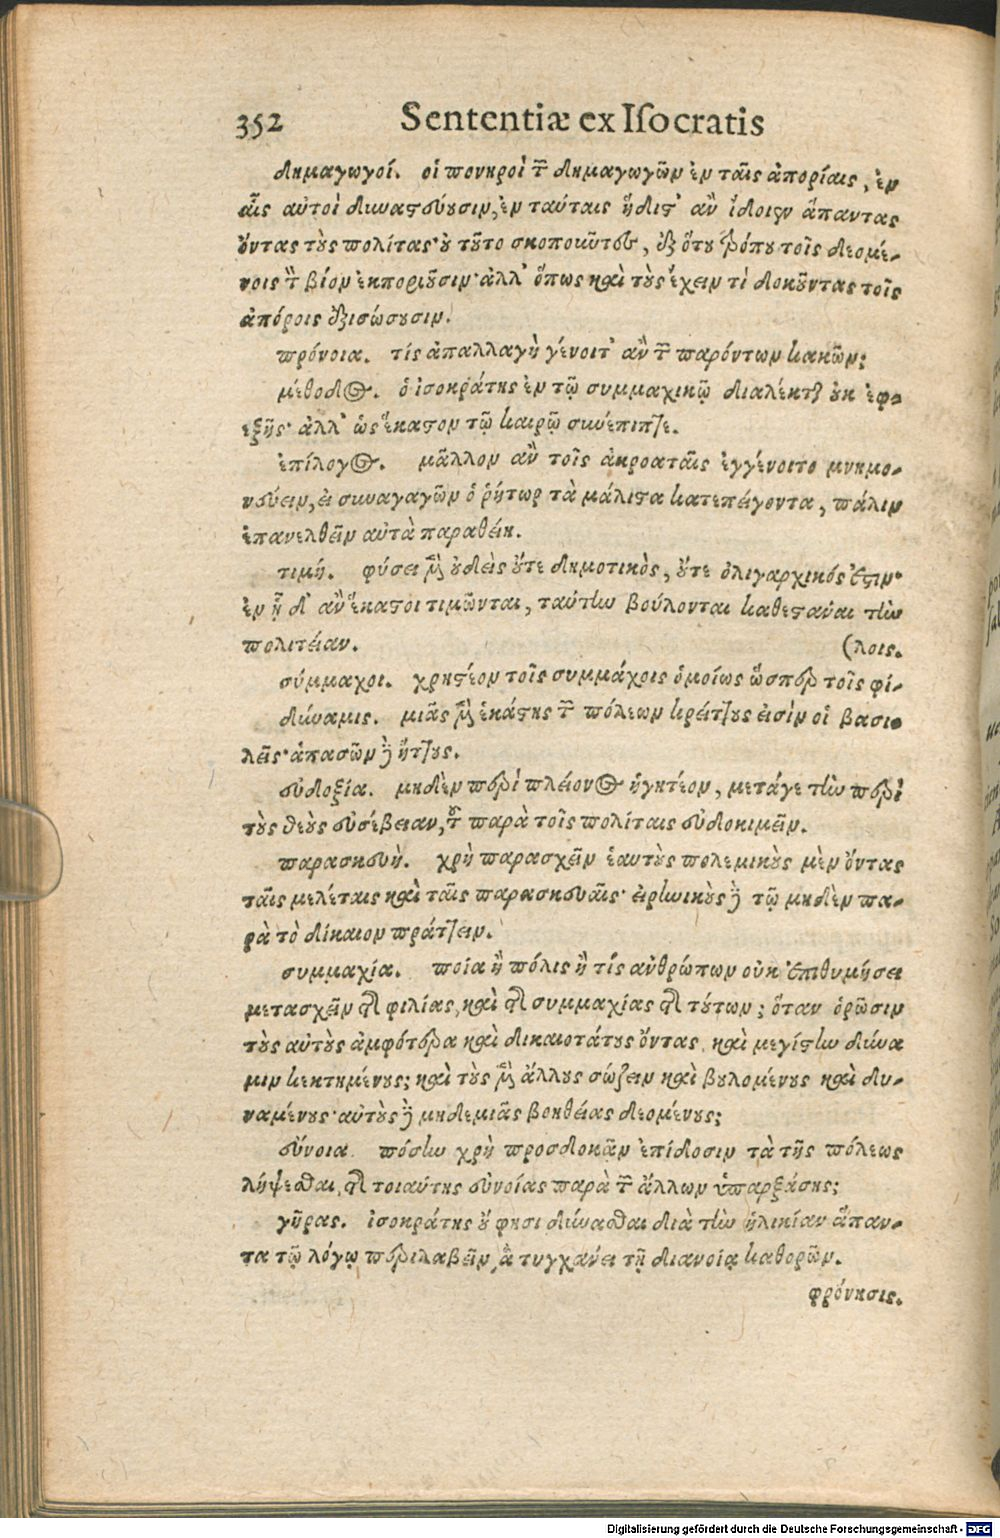 352 Sententiæ ex Isocratis
δημαγωγοί. οἱ πονηροὶ τῶν δημαγωγῶν ἐν ταῖς ἀπορίαις, ἐν
αἷς αὐτοὶ δυναστεύουσιν, ἐν ταύταις ἥδιστ' ἂν ἴδοιεν ἅπαντας
ὄντας τοὺς πολίτας· οὐ τοῦτο σκοποῦντες, ἐξ ὅτου τρόπου τοῖς δεομέ-
νοις τὸν βίον ἐκποριοῦσιν· ἀλλ' ὅπως καὶ τοὺς ἔχειν τὶ δοκοῦντας τοῖς
ἀπόροις ἐξισώσουσιν.
πρόνοια. τίς ἀπαλλαγὴ γένοιτ' ἂν τῶν παρόντων κακῶν;
μέθοδος. ὁ ἰσοκράτης ἐν τῷ συμμαχικῷ διαλέκται οὐκ ἐφ-
εξῆς· ἀλλ' ὡς ἕκαστον τῷ καιρῷ συνέπιπτε.
ἐπίλογος. μᾶλλον ἂν τοῖς ἀκροαταῖς ἐγγένοιτο μνημο-
νεύειν, εἰ συναγαγῶν ὁ ῥήτωρ τὰ μάλιστα κατεπείγοντα, πάλιν
ἐπανελθεῖν αὐτὰ παραθείη.
τιμή. φύσει μὲν οὐδεὶς οὔτε δημοτικὸς, οὔτε ὀλιγαρχικός ἐστιν·
ἐν ᾗ δ' ἂν ἕκαστοι τιμῶνται, ταύτην βούλονται καθεστάναι τὴν
πολιτείαν. (λοις.
σύμμαχοι. χρηστέον τοῖς συμμάχοις ὁμοίως ὥσπερ τοῖς φί-
δύναμις. μιᾶς μὲν ἑκάστης τῶν πόλεων κρείττους εἰσὶν οἱ βασι-
λεῖς· ἁπασῶν δὲ ἥττους.
εὐδοξία. μηδὲν περὶ πλείονος ἡγητέον, μετάγε τὴν περὶ
τοὺς θεοὺς εὐσέβειαν, τοῦ παρὰ τοῖς πολίταις εὐδοκιμεῖν.
παρασκευὴ. χρὴ παρασχεῖν ἑαυτοὺς πολεμικοὺς μὲν ὄντας
ταῖς μελέταις καὶ ταῖς παρασκευαῖς· εἰρηνικοὺς δὲ τῷ μηδὲν πα-
ρὰ τὸ δίκαιον πράττειν.
συμμαχία. ποία ἢ πόλις ἢ τίς ἀνθρώπων οὐκ ἐπιθυμήσει
μετασχεῖν τῆς φιλίας, καὶ τῆς συμμαχίας τῆς τούτων; ὅταν ὁρῶσιν
τοὺς αὐτοὺς ἀμφότερα καὶ δικαιοτάτους ὄντας, καὶ μεγίστην δύνα
μιν κεκτημένους; καὶ τοὺς μὲν ἄλλους σώζειν καὶ βουλομένους καὶ δυ-
ναμένους· αὐτοὺς δὲ μηδεμιᾶς βοηθείας δεομένους;
εὔνοια. πόσην χρὴ προσδοκᾶν ἐπίδοσιν τὰ τῆς πόλεως
λήψεσθαι, τῆς τοιαύτης εὐνοίας παρὰ τῶν ἄλλων ὑπαρξάσης;
γῆρας. ἰσοκράτης οὔ φησι δύνασθαι διὰ τὴν ἡλικίαν ἅπαν-
τα τῷ λόγῳ περιλαβεῖν, ἃ τυγχάνει τῇ διανοίᾳ καθορῶν.
φρόνησις.
Digitalisierung gefördert durch die Deutsche Forschungsgemeinschaft - DFG